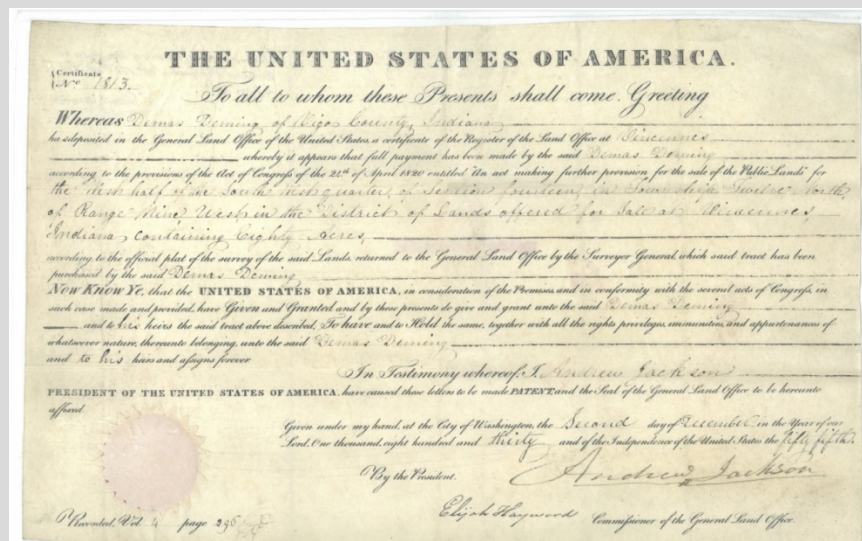 THE UNITED STATES OF AMERICA.
Certificate
No. 1813.
To all to whom these Presents shall come, Greeting
Whereas Demas Deming of Vigo County, Indiana
has deposited in the General Land Office of the United States, a certificate of the Register of the Land Office at Vincennes
whereby it appears that full payment has been made by the said Demas Deming
according to the provisions of the Act of Congress of the 24th of April 1820 entitled "An act making further provision for the sale of the Public Lands" for
the West half of the South West quarter, of Section fourteen, in Township Twelve North,
of Range Nine, West, in the District of Lands offered for Sale at Vincennes,
Indiana, containing Eighty Acres,
according to the official plat of the survey of the said Lands, returned to the General Land Office by the Surveyor General, which said tract has been
purchased by the said Demas Deming
Now Know Ye, that the UNITED STATES OF AMERICA, in consideration of the Premises, and in conformity with the several acts of Congress, in
such case made and provided, have Given and Granted and by these presents do give and grant unto the said Demas Deming
and to his heirs the said tract above described, To have and to Hold the same, together with all the rights privileges, immunities, and appurtenances of
whatsoever nature, thereunto belonging, unto the said Demas Deming
and to his heirs and assigns forever
In Testimony whereof, I, Andrew Jackson
PRESIDENT OF THE UNITED STATES OF AMERICA, have caused these letters to be made PATENT, and the Seal of the General Land Office to be hereunto
affixed.
Given under my hand, at the City of Washington, the Second day of December in the Year of our
Lord, One thousand, eight hundred and thirty and of the Independence of the United States the fifty fifth.
By the President.
Andrew Jackson
Elijah Hayward Commissioner of the General Land Office.
Recorded, Vol. 4 page 296